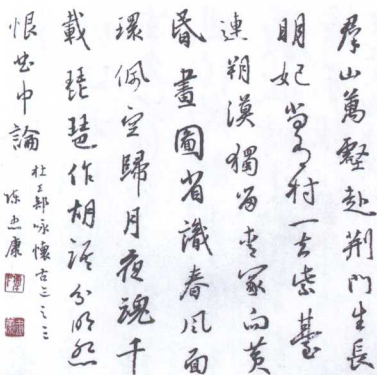 群山萬壑赴荆門生長
明妃尚有村一去紫臺
連朔漠獨留青冢向黄
昏畫圖省識春風面
環佩空歸月夜魂千
載琵琶作胡語分明怨
恨曲中論
杜工部咏懷古迹之三